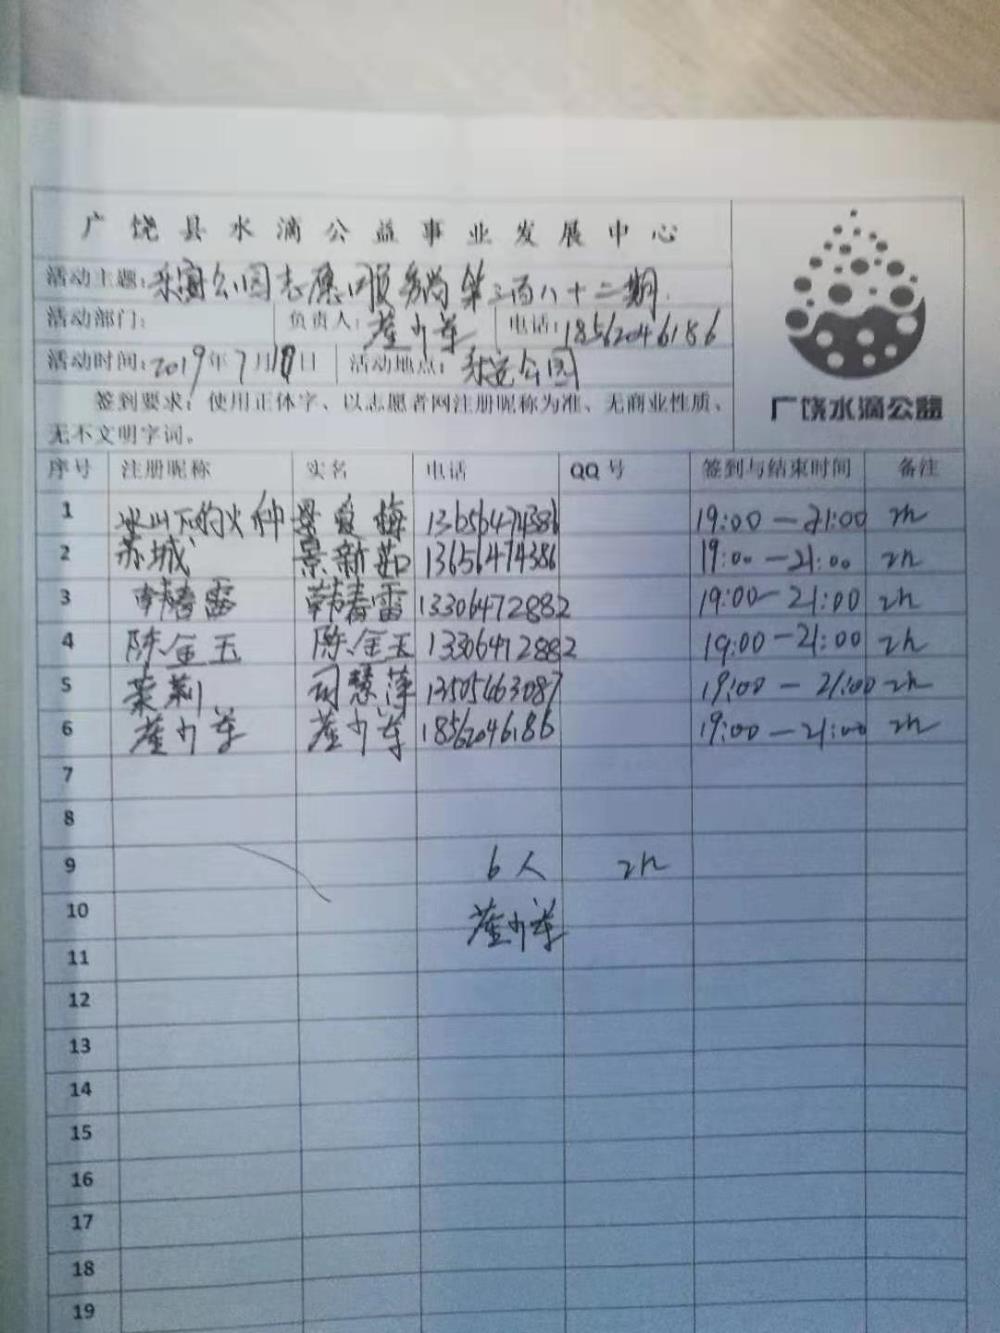 广饶县水滴公益事业发展中心
活动主题: 公园志愿服务岗第三百八十二期
活动部门: 负责人: 电话: 18562046186
活动时间: 2019年7月 日 活动地点: 公园
签到要求: 使用正体字、以志愿者网注册昵称为准、无商业性质、
无不文明字词。
广饶水滴公益
序号 注册昵称 实名 电话 QQ号 签到与结束时间 备注
1 冰山下的火种 爱梅 13656474386 19:00—21:00 2h
2 苏城 景新茹 13656474386 19:00—21:00 2h
3 韩春雷 韩春雷 13306472882 19:00—21:00 2h
4 陈金玉 陈金玉 13306472882 19:00—21:00 2h
5 茉莉 司慧萍 13505463087 19:00—21:00 2h
6 18562046186 19:00—21:00 2h
7
8
9 6人 2h
10
11
12
13
14
15
16
17
18
19